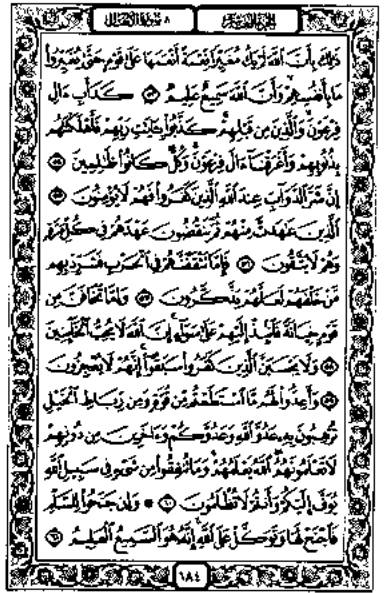 الجزء العاشر ٨ سورة الأنفال
ذَٰلِكَ بِأَنَّ ٱللَّهَ لَمْ يَكُ مُغَيِّرًا نِّعْمَةً أَنْعَمَهَا عَلَىٰ قَوْمٍ حَتَّىٰ يُغَيِّرُواْ
مَا بِأَنفُسِهِمْ وَأَنَّ ٱللَّهَ سَمِيعٌ عَلِيمٌ ٥٣ كَدَأْبِ ءَالِ
فِرْعَوْنَ وَٱلَّذِينَ مِن قَبْلِهِمْ كَذَّبُواْ بِـَٔايَٰتِ رَبِّهِمْ فَأَهْلَكْنَٰهُم
بِذُنُوبِهِمْ وَأَغْرَقْنَآ ءَالَ فِرْعَوْنَ وَكُلٌّ كَانُواْ ظَٰلِمِينَ ٥٤
إِنَّ شَرَّ ٱلدَّوَآبِّ عِندَ ٱللَّهِ ٱلَّذِينَ كَفَرُواْ فَهُمْ لَا يُؤْمِنُونَ ٥٥
ٱلَّذِينَ عَٰهَدتَّ مِنْهُمْ ثُمَّ يَنقُضُونَ عَهْدَهُمْ فِي كُلِّ مَرَّةٍ
وَهُمْ لَا يَتَّقُونَ ٥٦ فَإِمَّا تَثْقَفَنَّهُمْ فِي ٱلْحَرْبِ فَشَرِّدْ بِهِم
مَّنْ خَلْفَهُمْ لَعَلَّهُمْ يَذَّكَّرُونَ ٥٧ وَإِمَّا تَخَافَنَّ مِن
قَوْمٍ خِيَانَةً فَٱنۢبِذْ إِلَيْهِمْ عَلَىٰ سَوَآءٍ إِنَّ ٱللَّهَ لَا يُحِبُّ ٱلْخَآئِنِينَ
٥٨ وَلَا يَحْسَبَنَّ ٱلَّذِينَ كَفَرُواْ سَبَقُوٓاْ إِنَّهُمْ لَا يُعْجِزُونَ
٥٩ وَأَعِدُّواْ لَهُم مَّا ٱسْتَطَعْتُم مِّن قُوَّةٍ وَمِن رِّبَاطِ ٱلْخَيْلِ
تُرْهِبُونَ بِهِۦ عَدُوَّ ٱللَّهِ وَعَدُوَّكُمْ وَءَاخَرِينَ مِن دُونِهِمْ
لَا تَعْلَمُونَهُمُ ٱللَّهُ يَعْلَمُهُمْ وَمَا تُنفِقُواْ مِن شَيْءٍ فِي سَبِيلِ ٱللَّهِ
يُوَفَّ إِلَيْكُمْ وَأَنتُمْ لَا تُظْلَمُونَ ٦٠ ۞ وَإِن جَنَحُواْ لِلسَّلْمِ
فَٱجْنَحْ لَهَا وَتَوَكَّلْ عَلَى ٱللَّهِ إِنَّهُۥ هُوَ ٱلسَّمِيعُ ٱلْعَلِيمُ ٦١
١٨٤